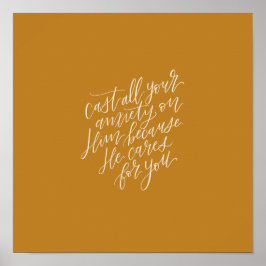 cast all your
anxiety on
Him because
He cares
for you